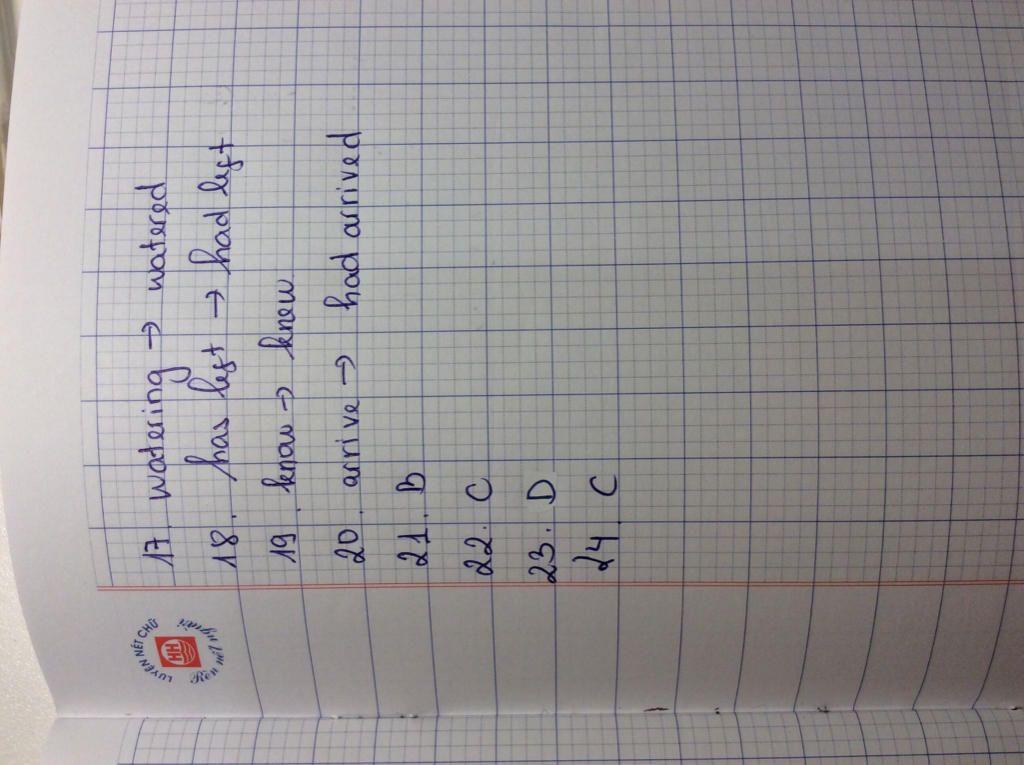 17. watering → watered
18. has left → had left
19. know → knew
20. arrive → had arrived
21. B
22. C
23. D
24. C
LUYỆN NÉT CHỮ
HH
Rèn nết người